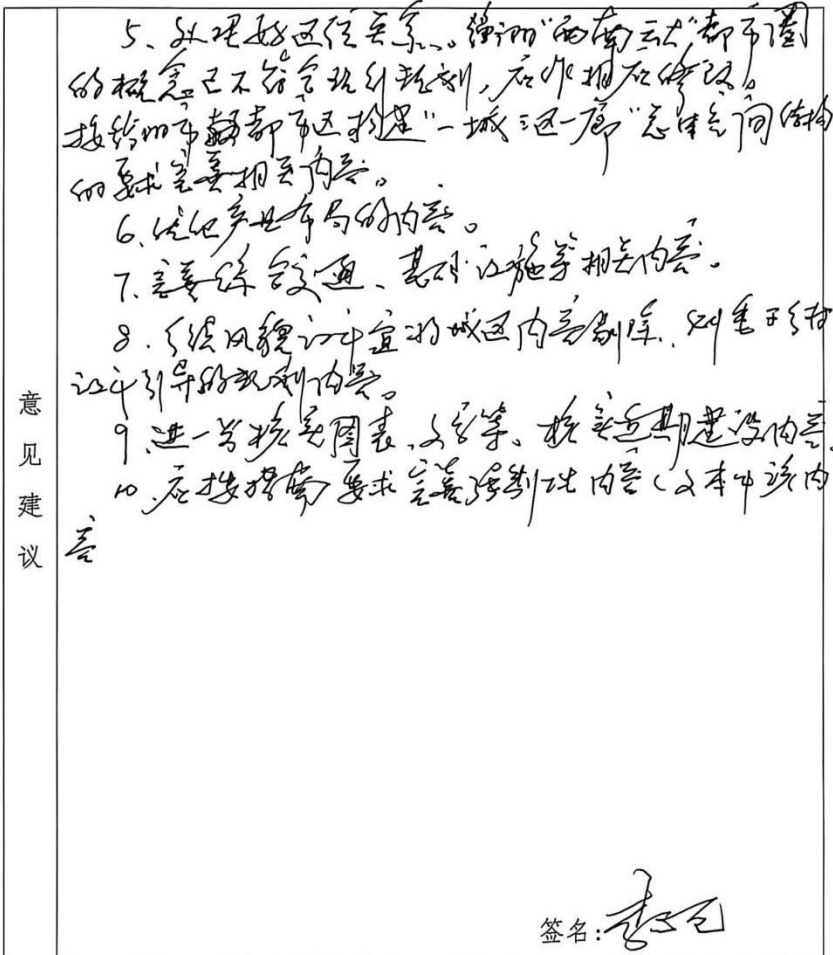 5、处理好区位关系。强调"西南云大"都市圈
的概念已不符合现行规划，应作相应修改。
按 市 都市区构建"一城三区一廊"总体空间结构
的要求完善相关内容。
6、优化产业布局的内容。
7、完善综合交通、基础设施等相关内容。
8、传统风貌设计宜将城区内容删除，侧重于乡村
设计引导的规划内容。
9、进一步核实图表、文字等、核实近期建设内容。
10、应按 要求完善强制性内容（文本中该内
容
意见建议
签名：李